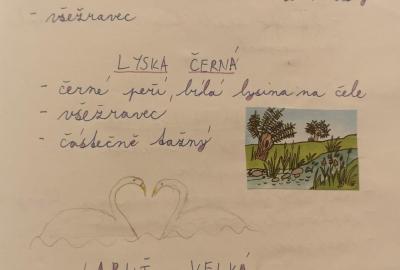 - všežravec
LYSKA ČERNÁ
- černé peří, bílá lysina na čele
- všežravec
- částečně tažný
LABUŤ VELKÁ